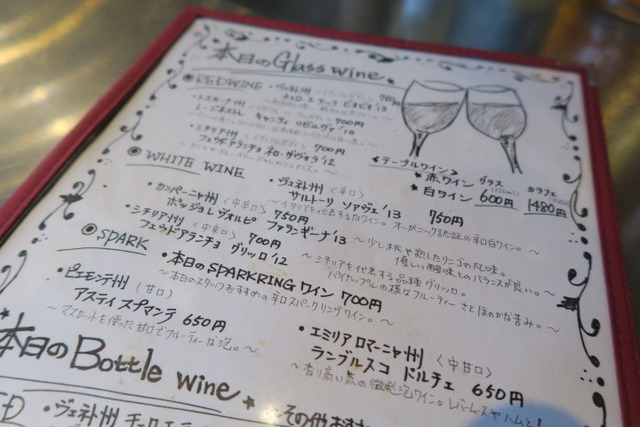 本日のGlass wine
◉RED WINE
・ヴェネト州
700円
トスカーナ州
キャンティ リゼルヴァ'10
700円
シチリア州
700円
フェウドアランチョ ネロ・ダヴォラ'12
<テーブルワイン>
グラス
カラフェ
★赤ワイン
★白ワイン
600円
1480円
◉WHITE WINE
・ヴェネト州〈辛口〉
サルトーリ ソアヴェ'13 750円
〜イタリアを代表する白ワイン。オーガニック認証の辛口白ワイン。〜
・カンパーニャ州〈中辛口〉
ファランギーナ'13
750円
〜少し桃や熟したリンゴの風味。
優しい酸味とのバランスが良い。〜
・シチリア州〈中辛口〉
フェウドアランチョ グリッロ'12
700円
〜シチリアを代表する品種グリッロ。
パイナップルの様なフルーティーさとほのかな苦み。〜
◉SPARK
・本日のSPARKRINGワイン 700円
〜本日のスタッフおすすめの辛口スパークリングワイン。〜
・ピエモンテ州〈甘口〉
アスティ スプマンテ 650円
〜マスカットを使った甘口でフルーティーな泡。〜
・エミリアロマーニャ州〈中甘口〉
ランブルスコ ドルチェ 650円
〜香り高い赤の微発泡ワイン。レバームースやハムと!
本日のBottle wine
・ヴェネト州
その他おすす